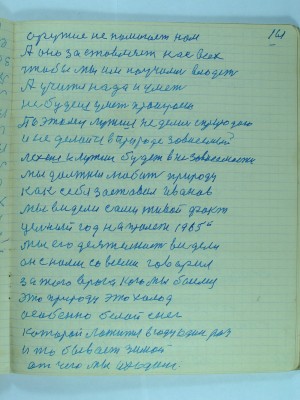 161
оружие не помогает нам
А оно заставляет нас всех
чтобы мы им научили владет
А учится нада и умет
не будеш умет проиграеш
Поэтому лутше не дели с природою
и не делай в природе зависемост
легше и лутше будет в независемости
мы должны любит природу
как себя заставил иванов
мы видели самы живой факт
целый год на пролет 1965 и
мы его деятелност видели
он с нами со всеми говорил
за того врага кого мы боимся
это природу это холод
особенно белой снег
которай ложится в году один раз
и то бывает зимой
от чего мы уходим